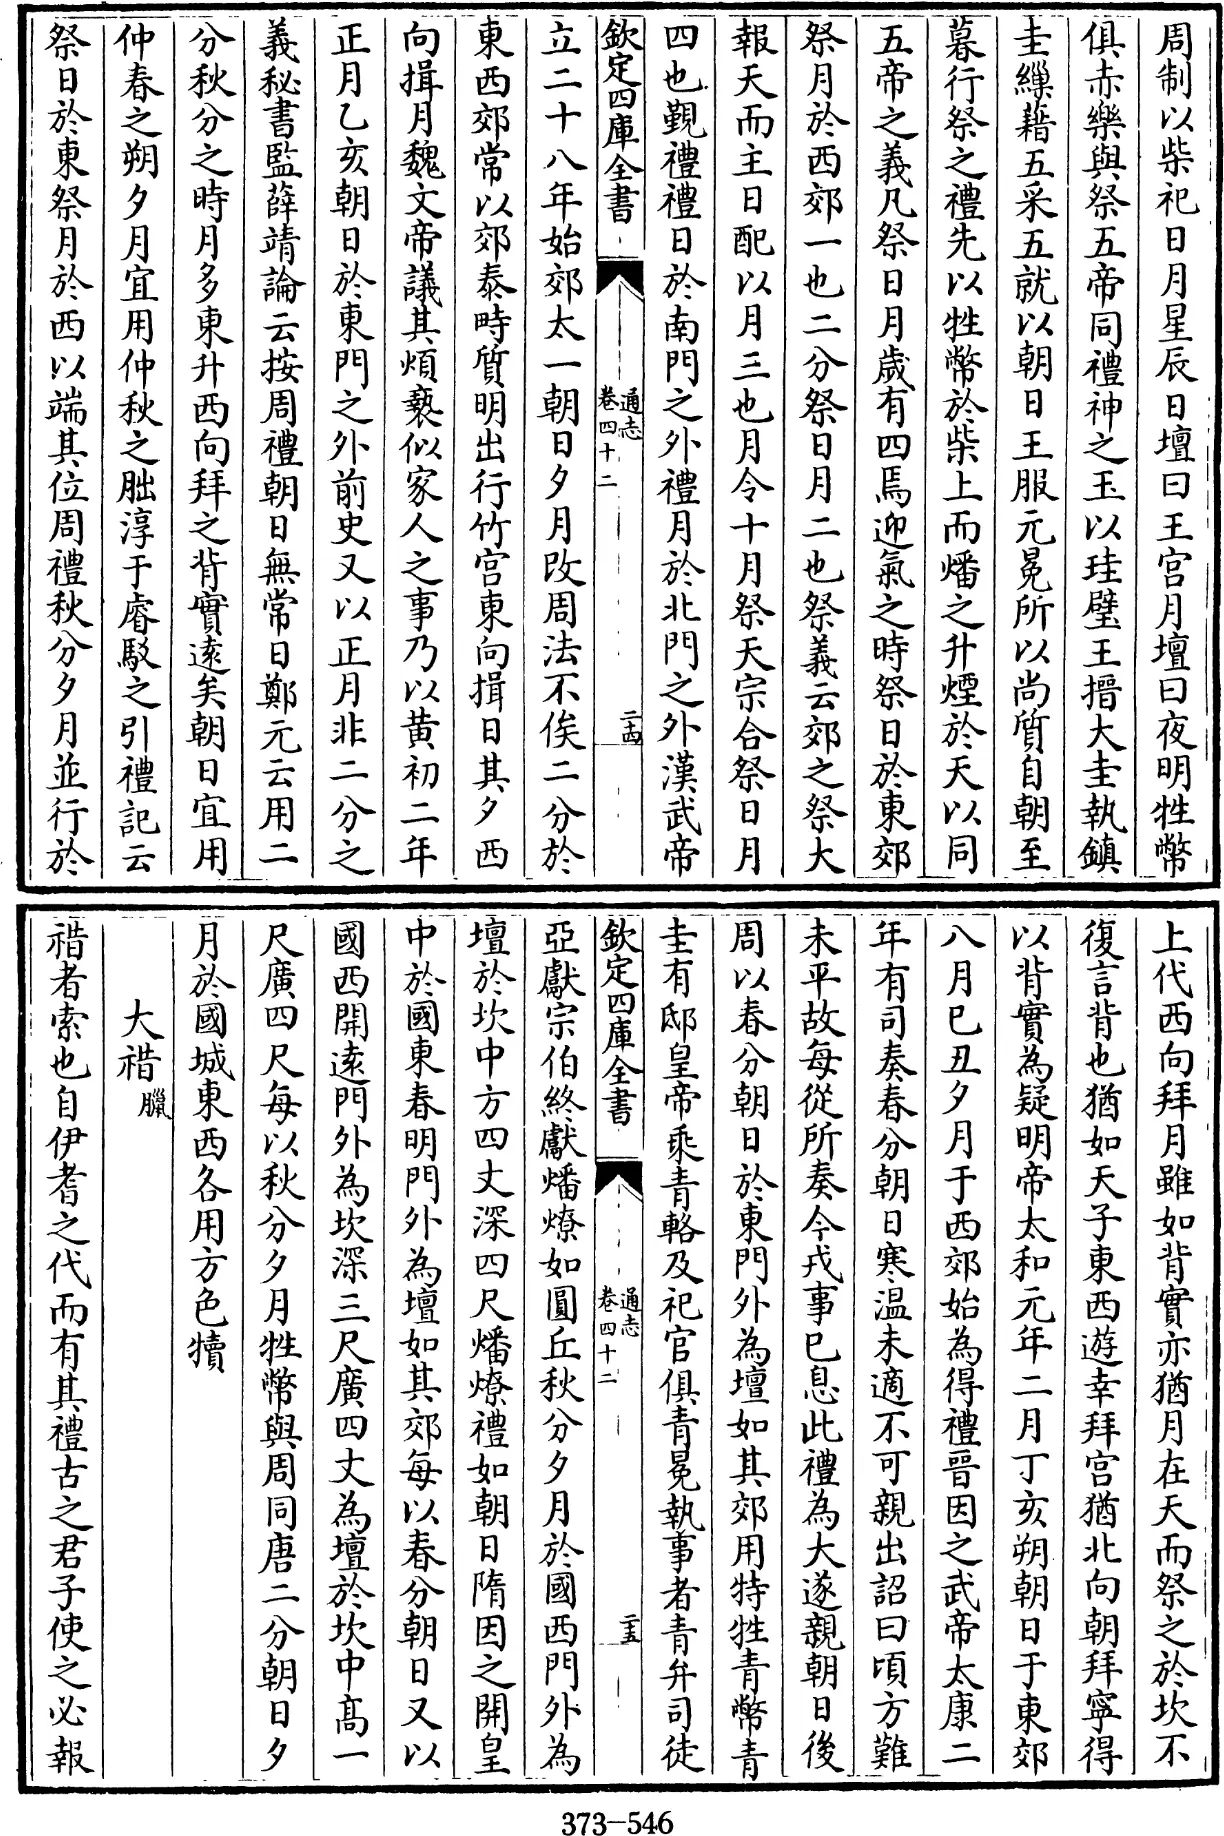 周制以柴祀日月星辰日壇曰王宫月壇曰夜明牲幣
俱赤樂與祭五帝同禮神之玉以珪璧王搢大圭執鎮
圭繅藉五采五就以朝日王服元冕所以尚質自朝至
暮行祭之禮先以牲幣於柴上而燔之升煙於天以同
五帝之義凡祭日月歲有四焉迎氣之時祭日於東郊
祭月於西郊一也二分祭日月二也祭義云郊之祭大
報天而主日配以月三也月令十月祭天宗合祭日月
四也覲禮禮日於南門之外禮月於北門之外漢武帝
欽定四庫全書
通志
卷四十二
二十四
立二十八年始郊太一朝日夕月改周法不俟二分於
東西郊常以郊泰畤質明出行竹宫東向揖日其夕西
向揖月魏文帝議其煩褻似家人之事乃以黄初二年
正月乙亥朝日於東門之外前史又以正月非二分之
義秘書監薛靖論云按周禮朝日無常日鄭元云用二
分秋分之時月多東升西向拜之背實遠矣朝日宜用
仲春之朔夕月宜用仲秋之朏淳于睿駁之引禮記云
祭日於東祭月於西以端其位周禮秋分夕月並行於
上代西向拜月雖如背實亦猶月在天而祭之於坎不
復言背也猶如天子東西遊幸拜宫猶北向朝拜寧得
以背實為疑明帝太和元年二月丁亥朔朝日于東郊
八月己丑夕月于西郊始為得禮晉因之武帝太康二
年有司奏春分朝日寒温未適不可親出詔曰頃方難
未平故每從所奏今戎事已息此禮為大遂親朝日後
周以春分朝日於東門外為壇如其郊用特牲青幣青
圭有邸皇帝乘青輅及祀官俱青冕執事者青弁司徒
欽定四庫全書
通志
卷四十二
二十五
亞獻宗伯終獻燔燎如圓丘秋分夕月於國西門外為
壇於坎中方四丈深四尺燔燎禮如朝日隋因之開皇
中於國東春明門外為壇如其郊每以春分朝日又以
國西開遠門外為坎深三尺廣四丈為壇於坎中高一
尺廣四尺每以秋分夕月牲幣與周同唐二分朝日夕
月於國城東西各用方色犢
大䄍臘
䄍者索也自伊耆之代而有其禮古之君子使之必報
373-546